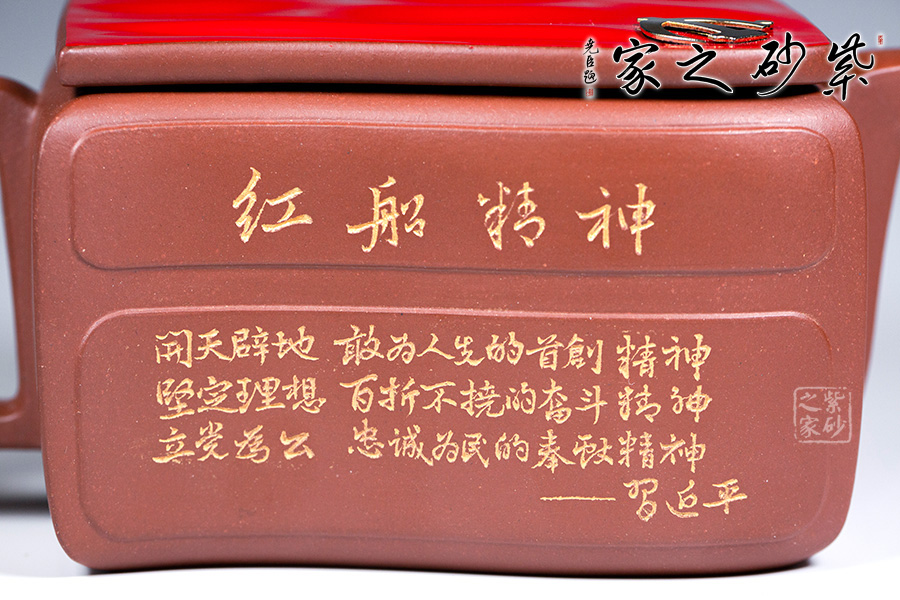 紫砂之家
红船精神
開天辟地 敢为人先的首創精神
堅定理想 百折不挠的奋斗精神
立党為公 忠诚为民的奉献精神
——習近平
紫砂之家